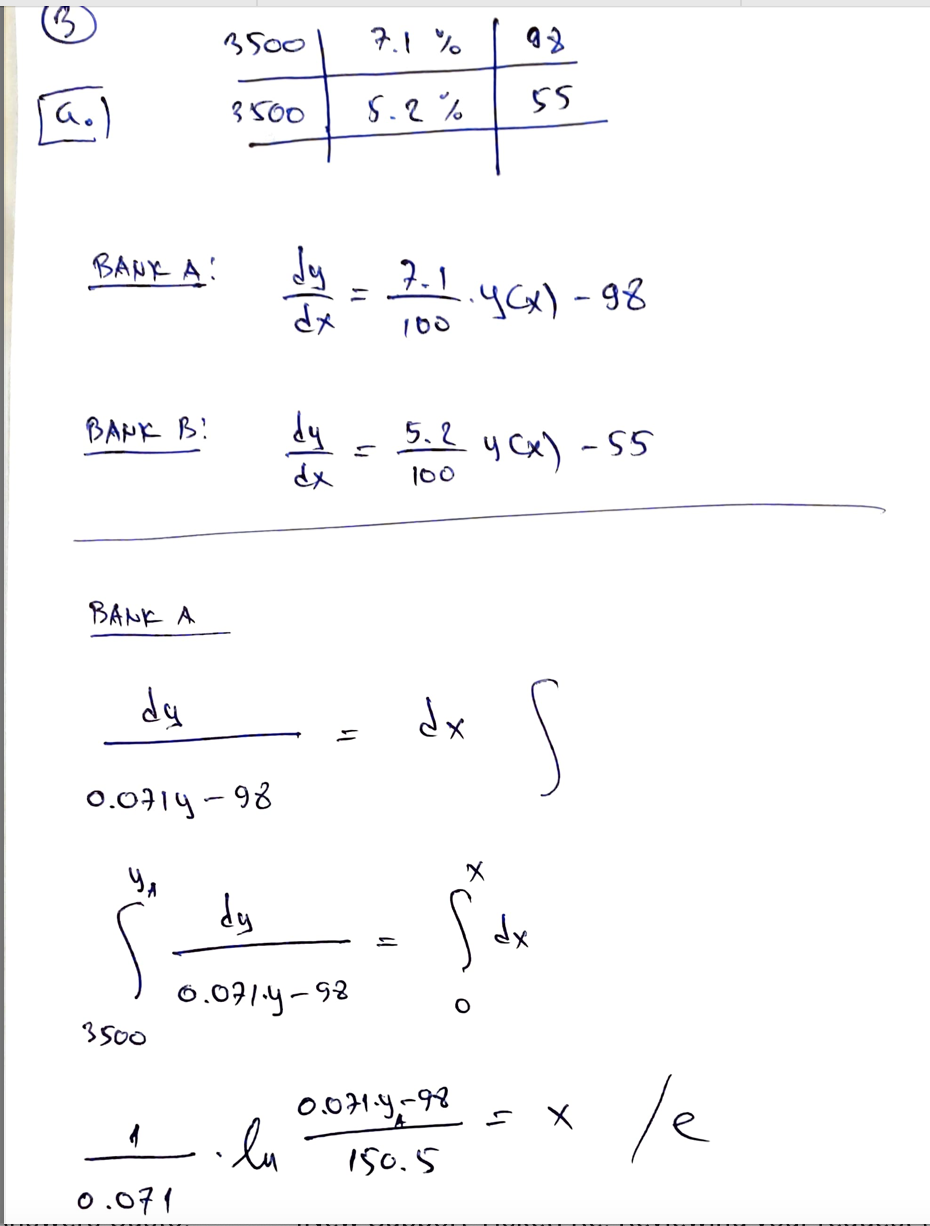 ③
3500 | 7.1 % | 98
a.)
3500 | 5.2 % | 55
BANK A: dy/dx = 7.1/100 · y(x) - 98
BANK B: dy/dx = 5.2/100 y(x) - 55
BANK A
dy / 0.071y - 98 = dx ∫
∫_{3500}^{y_A} dy / 0.071·y - 98 = ∫_{0}^{x} dx
1/0.071 · ln 0.071·y_A - 98 / 150.5 = x /e